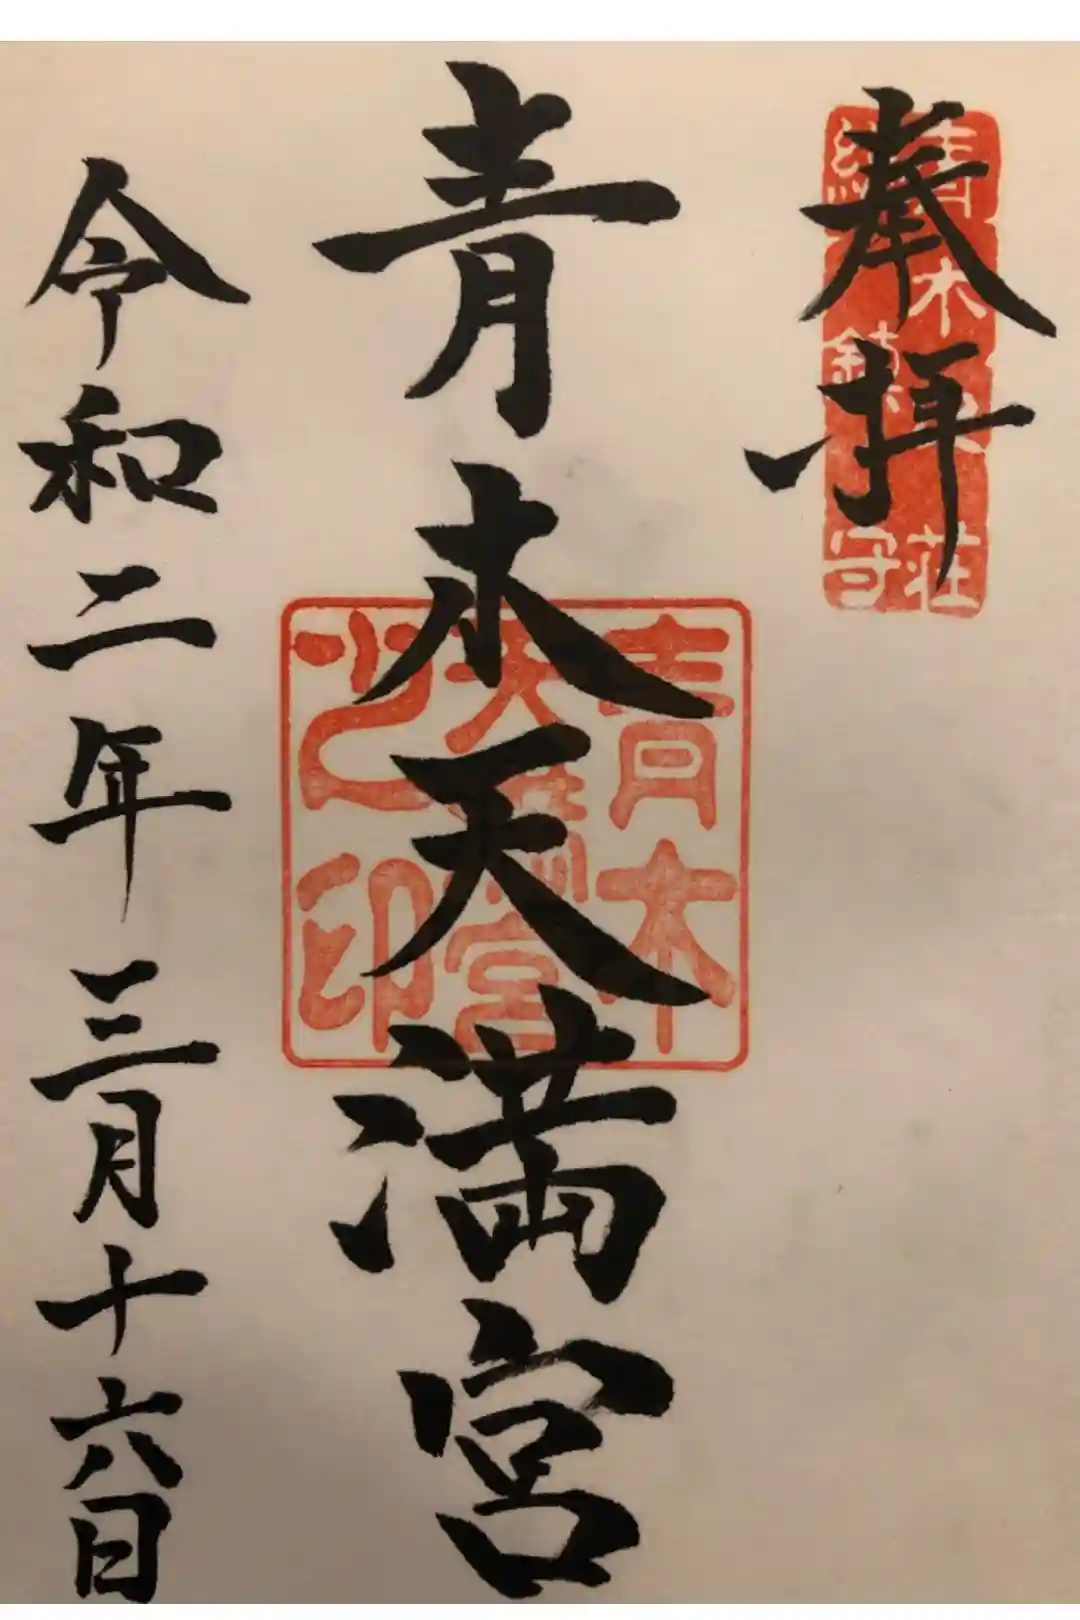 奉拝
青木天満宮
令和二年三月十六日
青木之荘
総鎮守
青木
天満宮
之印